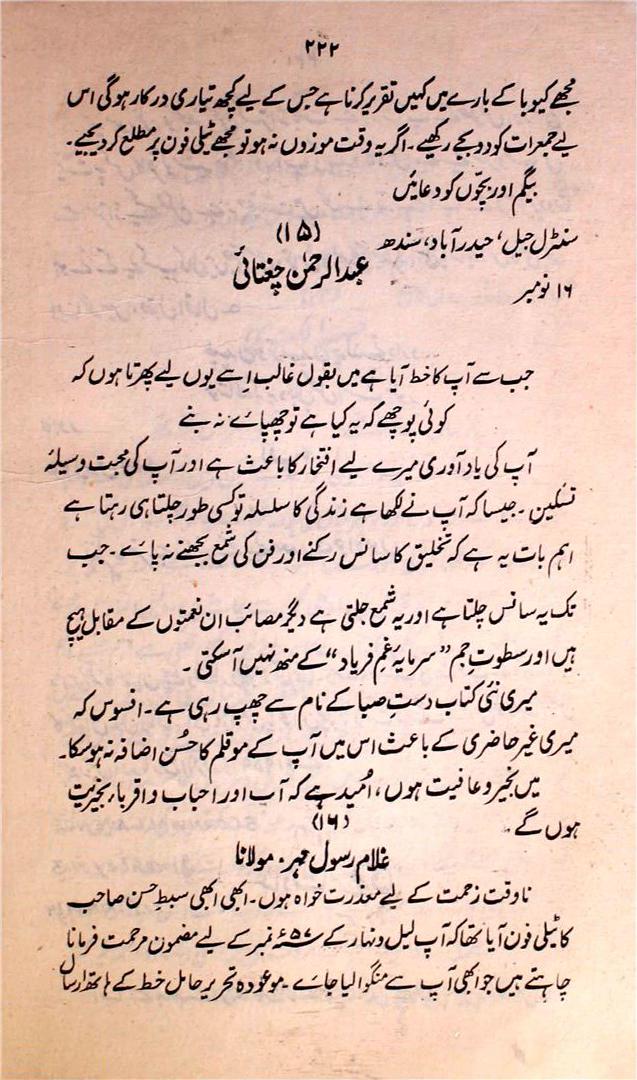 ۲۲۲
مجھے کیوبا کے بارے میں کہیں تقریر کرنا ہے جس کے لیے کچھ تیاری درکار ہوگی اس
لیے جمعرات کو دو بجے رکھیے۔ اگر یہ وقت موزوں نہ ہو تو مجھے ٹیلی فون پر مطلع کر دیجیے۔
بیگم اور بچّوں کو دعائیں
(۱۵)
سنٹرل جیل، حیدرآباد، سندھ
عبدالرحمٰن چغتائی
۱۶ نومبر
جب سے آپ کا خط آیا ہے میں بقول غالب اِسے یوں لیے پھرتا ہوں کہ
کوئی پوچھے کہ یہ کیا ہے تو چھپائے نہ بنے
آپ کی یاد آوری میرے لیے افتخار کا باعث ہے اور آپ کی محبت وسیلۂ
تسکین۔ جیسا کہ آپ نے لکھا ہے زندگی کا سلسلہ تو کسی طور چلتا ہی رہتا ہے
اہم بات یہ ہے کہ تخلیق کا سانس رکنے اور فن کی شمع بجھنے نہ پائے۔ جب
تک یہ سانس چلتا ہے اور یہ شمع جلتی ہے دیگر مصائب ان نعمتوں کے مقابل ہیچ
ہیں اور سطوتِ جم ”سرمایۂ غمِ فریاد“ کے منھ نہیں آ سکتی۔
میری نئی کتاب دستِ صبا کے نام سے چھپ رہی ہے۔ افسوس کہ
میری غیر حاضری کے باعث اس میں آپ کے موقلم کا حُسن اضافہ نہ ہو سکا۔
میں بخیر و عافیت ہوں، اُمید ہے کہ آپ اور احباب و اقربا بخیریت
ہوں گے۔
(۱۶)
غلام رسول مہر۔ مولانا
ناوقت زحمت کے لیے معذرت خواہ ہوں۔ ابھی ابھی سبطِ حسن صاحب
کا ٹیلی فون آیا تھا کہ آپ لیل و نہار کے ۵۷ نمبر کے لیے مضمون مرحمت فرمانا
چاہتے ہیں جو ابھی آپ سے منگوا لیا جائے۔ موعودہ تحریر حامل خط کے ہاتھ ارسال